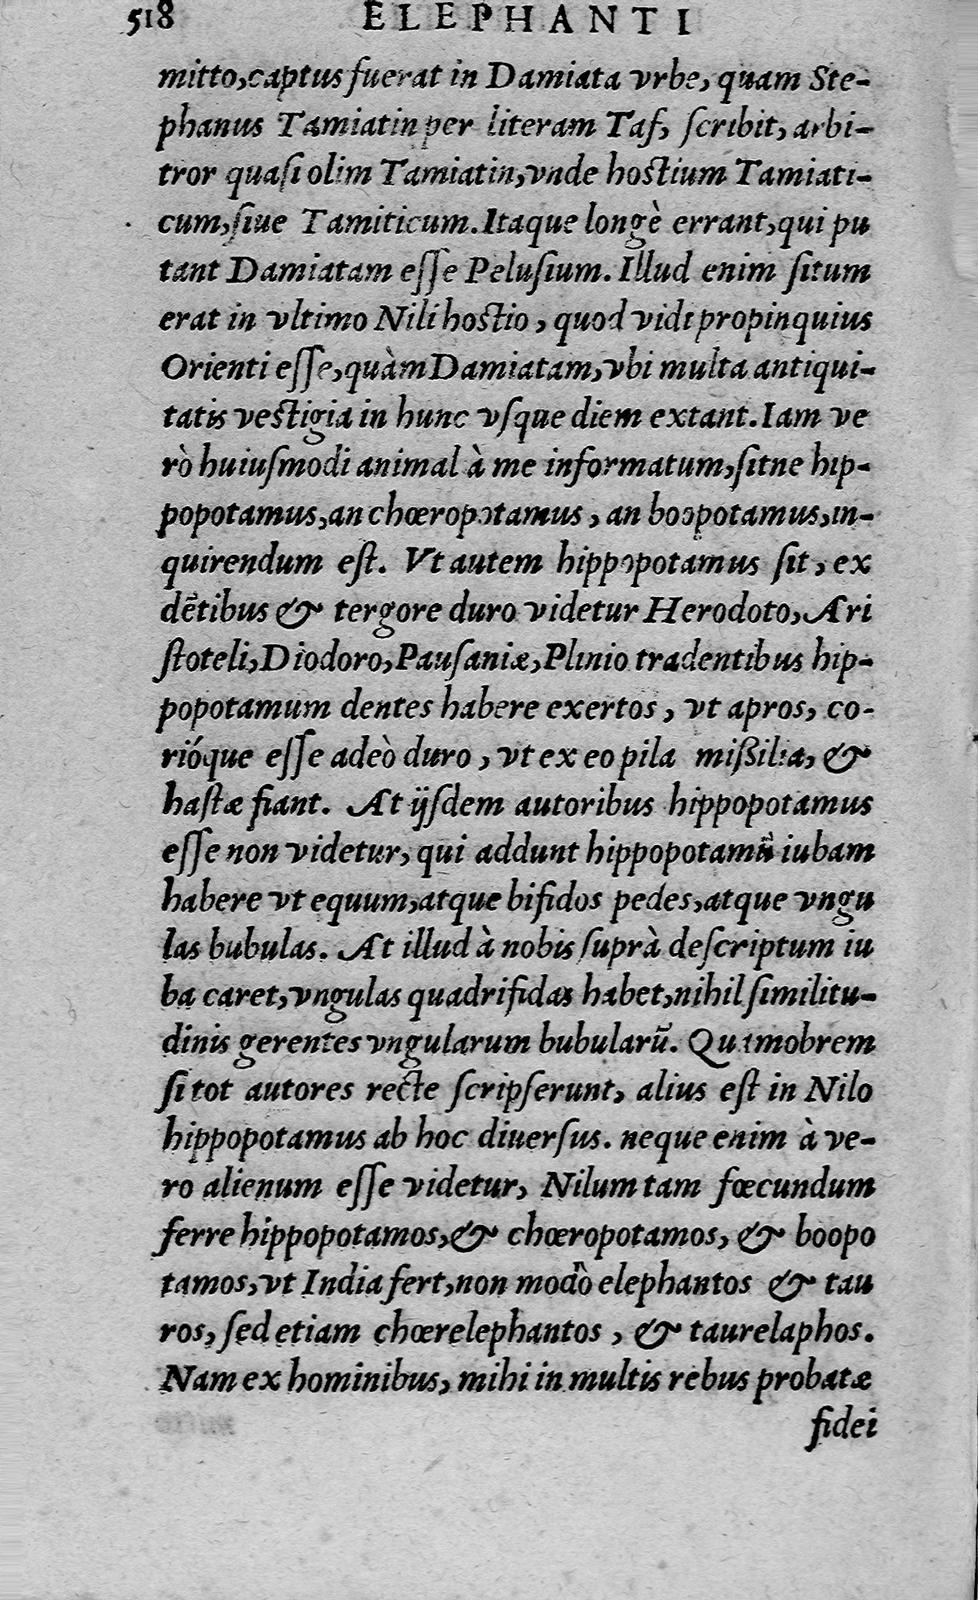 518 ELEPHANTI
mitto,captus fuerat in Damiata vrbe, quam Ste-
phanus Tamiatin per literam Taf, ſcribit, arbi-
tror quaſi olim Tamiatin,vnde hoſtium Tamiati-
cum,ſiue Tamiticum.Itaque longè errant,qui pu
tant Damiatam eſſe Peluſium. Illud enim ſitum
erat in vltimo Nili hoſtio, quod vidi propinquius
Orienti eſſe,quàm Damiatam,vbi multa antiqui-
tatis veſtigia in hunc vſque diem extant.Iam ve
rò huiuſmodi animal à me informatum,ſitne hip-
popotamus,an chœropotamus, an boopotamus,in-
quirendum eſt. Vt autem hippopotamus ſit, ex
dẽtibus & tergore duro videtur Herodoto, Ari
ſtoteli,Diodoro,Pauſaniæ,Plinio tradentibus hip-
popotamum dentes habere exertos, vt apros, co-
rióque eſſe adeò duro, vt ex eo pila mißilia, &
haſtæ fiant. At ijſdem autoribus hippopotamus
eſſe non videtur, qui addunt hippopotamũ iubam
habere vt equum,atque bifidos pedes,atque vngu
las bubulas. At illud à nobis ſuprà deſcriptum iu
ba caret,vngulas quadrifidas habet,nihil ſimilitu-
dinis gerentes vngularum bubularũ. Quamobrem
ſi tot autores recte ſcripſerunt, alius eſt in Nilo
hippopotamus ab hoc diuerſus. neque enim à ve-
ro alienum eſſe videtur, Nilum tam fœcundum
ferre hippopotamos,& chœropotamos, & boopo
tamos,vt India fert,non modò elephantos & tau
ros, ſed etiam chœrelephantos, & taurelaphos.
Nam ex hominibus, mihi in multis rebus probatæ
fidei